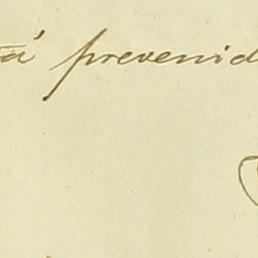 tá prevenid